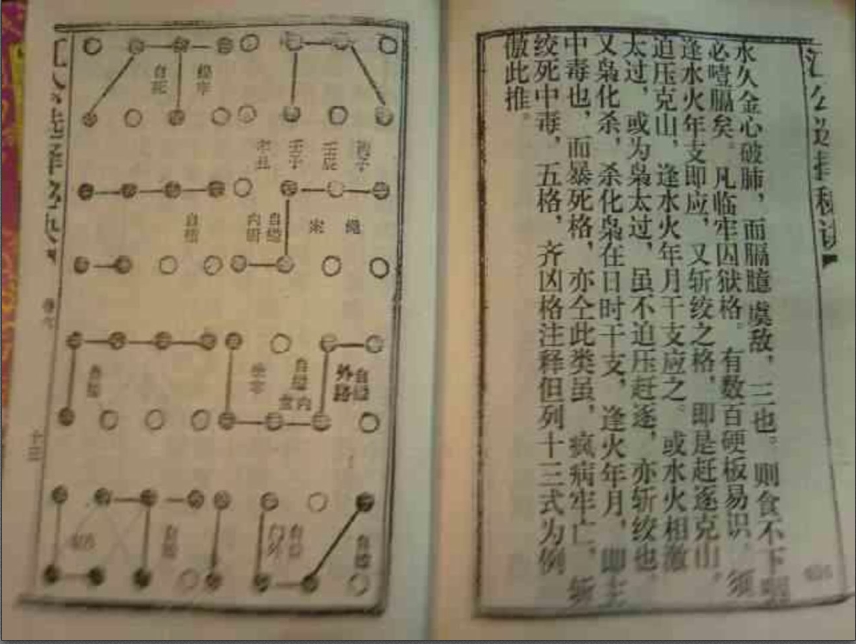 江公选择秘诀
水久金心破肺，而膈臆虞敌，三也。则食不下咽
必噎膈矣。凡临牢囚狱格。有数百硬板易识。须
逢水火年支即应，又斩绞之格，即是赶逐克山，
迫压克山，逢水火年月干支应之。或水火相激
太过，或为枭太过，虽不迫压赶逐，亦斩绞也。
又枭化杀，杀化枭在日时干支，逢火年月，即主
中毒也，而暴死格，亦仝此类虽，疯病牢亡，斩
绞死中毒，五格，齐凶格注释但列十三式为例
倣此推。
自死
壬子
壬辰
自缢
内
自缢
自缢
外路
自缢
内
自缢
门外
自缢
江公选择秘诀
十三